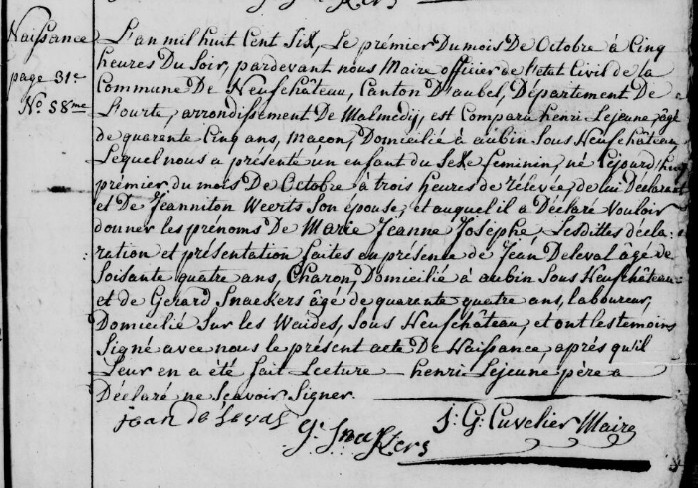 Naissance
page 31e
No. 58me
L'an mil huit Cent Six, Le prémier Du mois De Octobre à Cinq
heures Du Soir, pardevant nous Maire officier de l'etat Civil de la
Commune De Neufchâteau, Canton D'aubel, Département De
L'ourte, arrondissement De Malmedÿ, est Comparu henri Lejeune, âgé
de quarente Cinq ans, Maçon, Domicilié à aubin Sous Neufchâteau
Lequel nous a présenté un enfant du Sexe feminin, né Cejourd'huy
prémier du mois De Octobre à trois heures de rélevée, de lui Déclarant
et De Jeanniton Weerts Son épouse, et auquel il a Déclaré Vouloir
donner les prénoms De Marie Jeanne Josephe. Lesdittes décla:
ration et présentation faites en présence de Jean Deleval âgé de
Soisante quatre ans, Charon, Domicilié à aubin Sous Neufchâteau
et de Gérard Snaekers âgé de quarente quatre ans, laboureur,
Domicilié Sur les Waides, Sous Neufchâteau, et ont les temoins
Signé avec nous le présent acte De Naissance, après qu'il
Leur en a été fait Lecture — henri Lejeune père a
Déclaré ne Scavoir Signer.
jean de Leval
g. Snakers
J: G: Cuvelier Maire